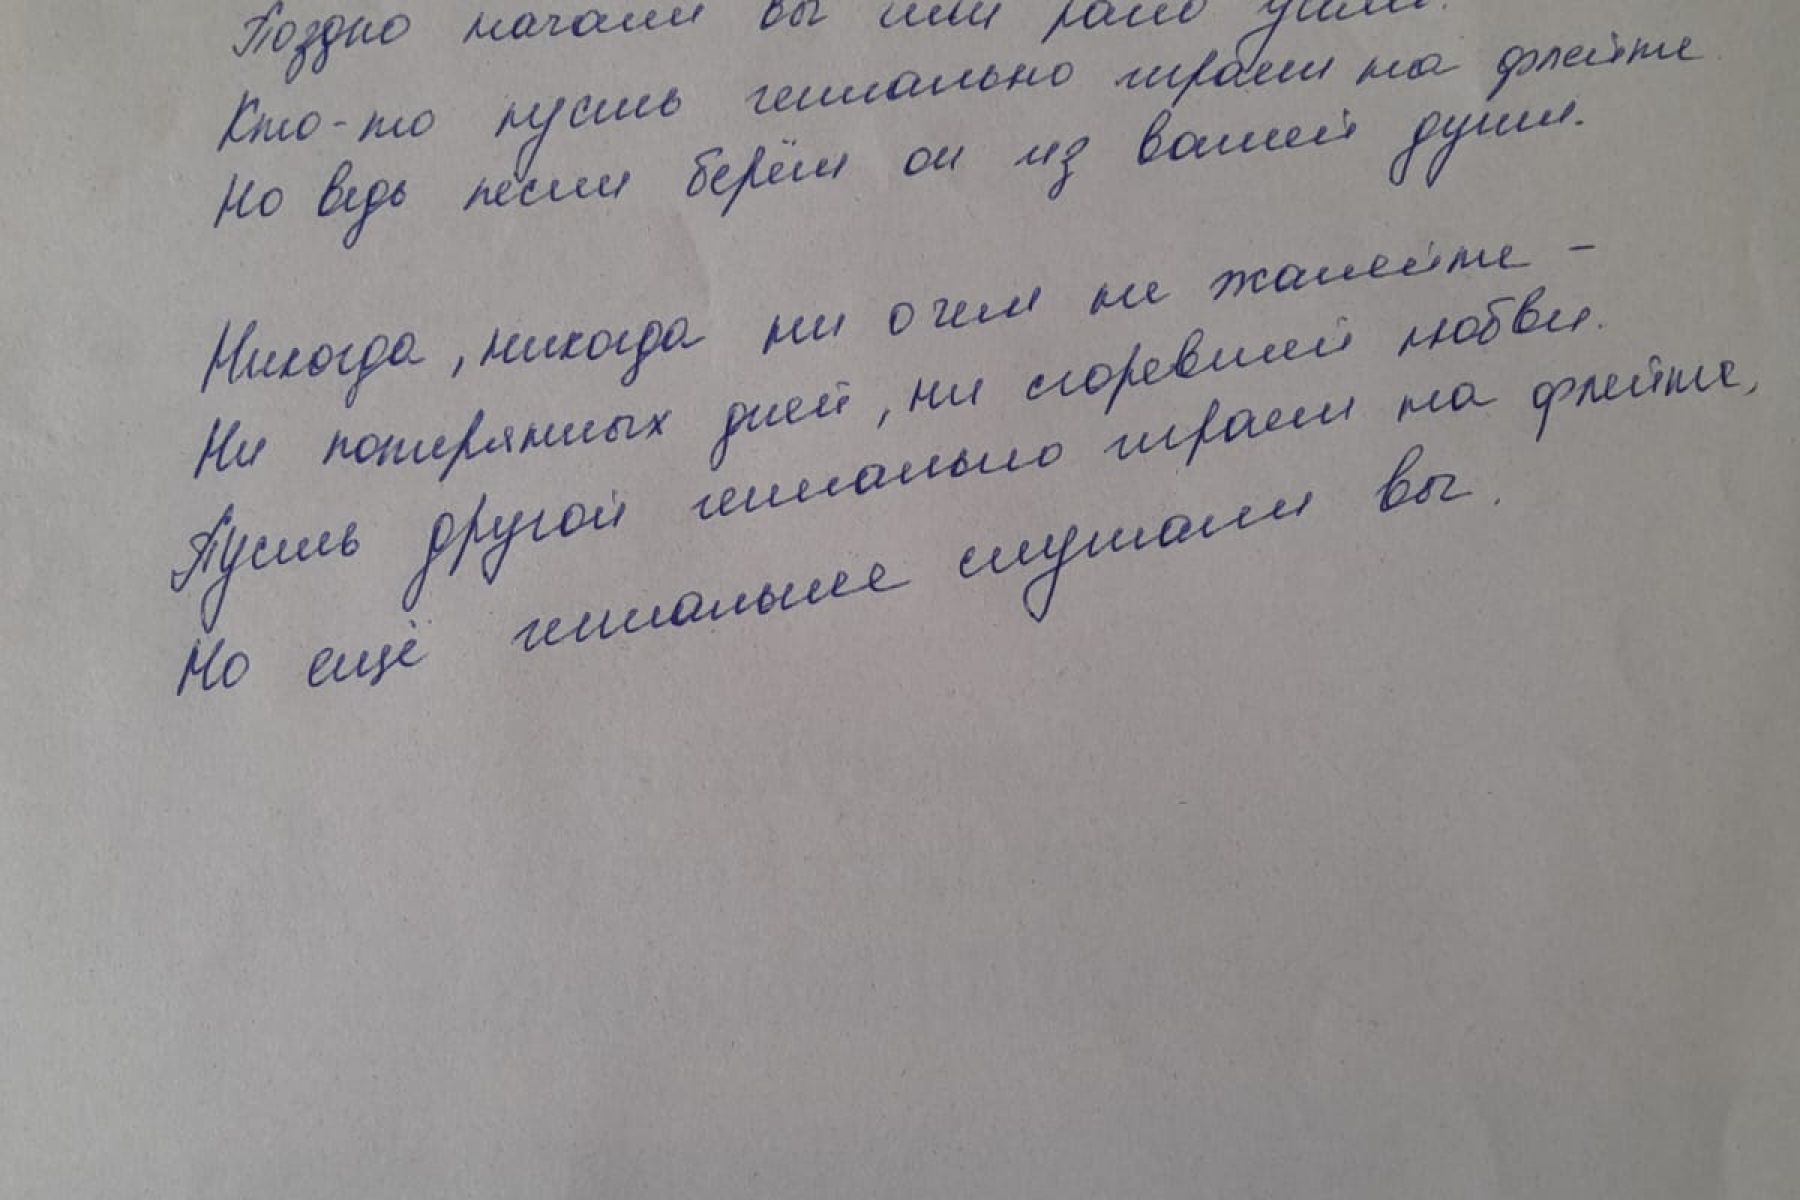 Поздно начали вы или рано ушли.
Кто-то пусть гениально играет на флейте.
Но ведь песни берёт он из вашей души.
Никогда, никогда ни о чем не жалейте -
Ни потерянных дней, ни сгоревшей любви.
Пусть другой гениально играет на флейте,
Но ещё гениальнее слушали вы.